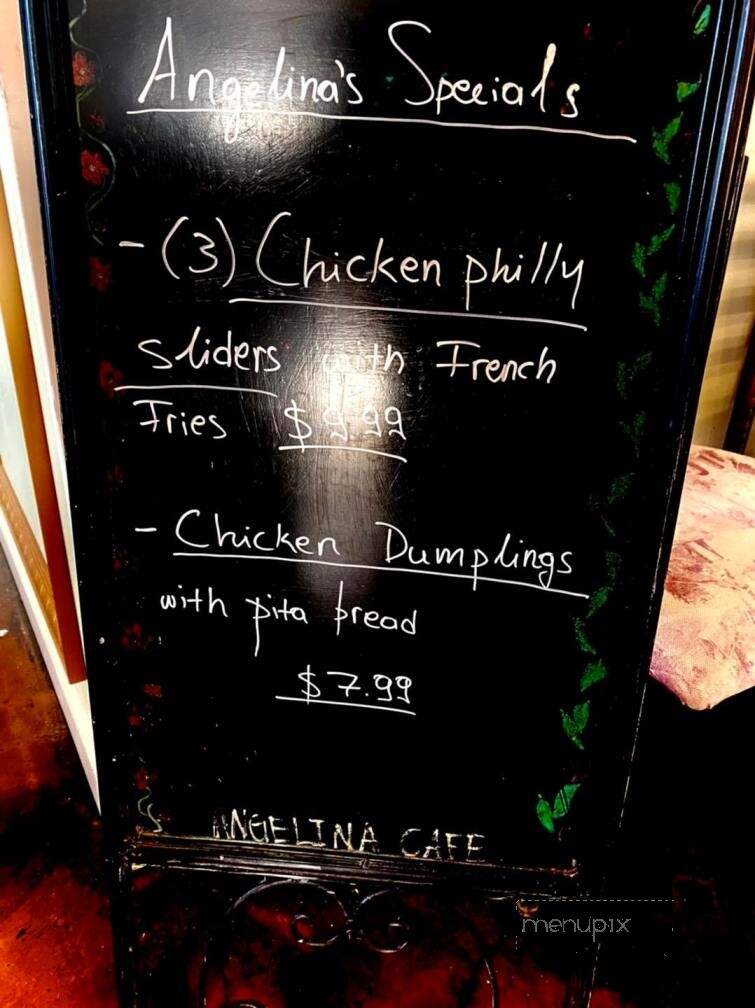 Angelina's Specials
- (3) Chicken philly
sliders with French
Fries $9.99
- Chicken Dumplings
with pita bread
$7.99
ANGELINA CAFE
menupix